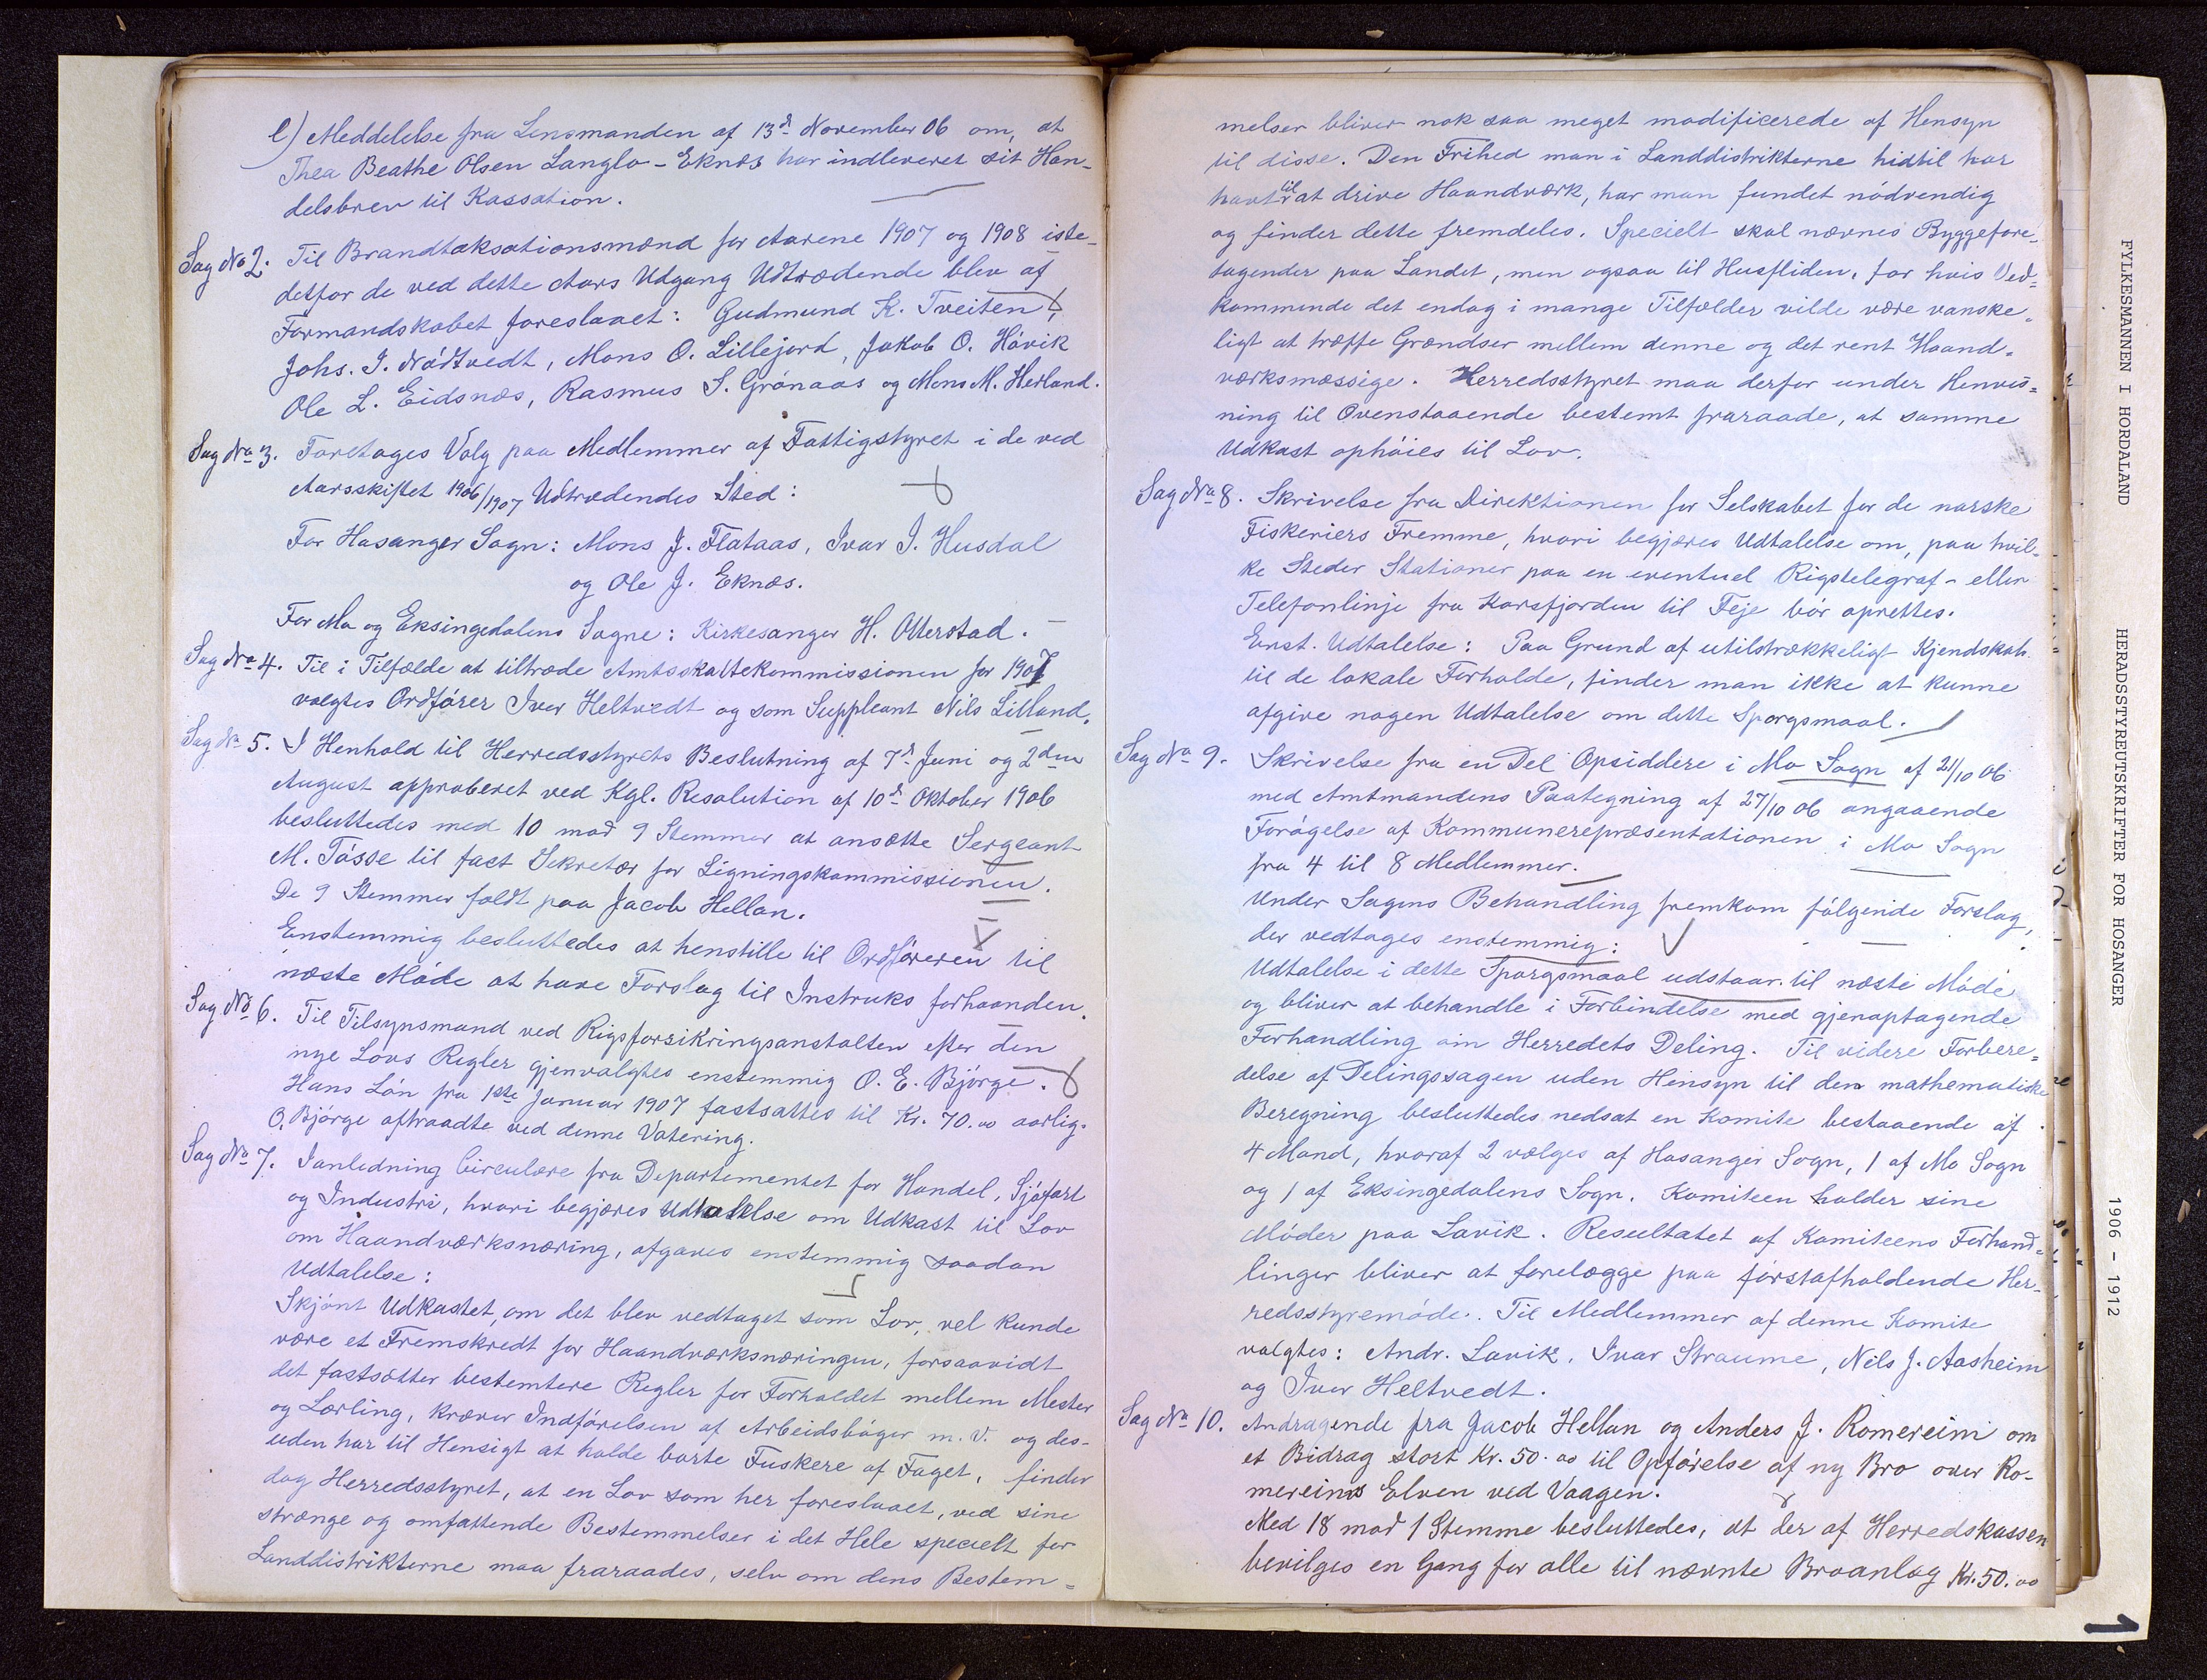 e) Meddelelse fra Lensmanden af 13d November 06 om, at
Thea Beathe Olsen Langlo - Eknæs har indleveret sit Han-
delsbrev til Kassation.
Sag No 2. Til Brandtaksationsmænd for Aarene 1907 og 1908 iste-
detfor de ved dette Aars Udgang Udtrædende blev af
Formandskabet foreslaaet: Gudmund K. Tveiten,
Johs. J. Nødtvedt, Mons O. Lillejord, Jakob O. Håvik
Ole L. Eidsnæs, Rasmus S. Grönaas og Mons M. Herland.
Sag No 3. Foretages Valg paa Medlemmer af Fattigstyret i de ved
Aarsskiftet 1906/1907 Udtrædendes Sted:
For Hasanger Sogn: Mons J. Flataas, Ivar I. Husdal
og Ole J. Eknæs.
For Mo og Eksingedalens Sogne: Kirkesanger H. Otterstad.
Sag No 4. Til i Tilfælde at tiltræde Amtsskattekommissionen for 1907
valgtes Ordfører Iver Heltvedt og som Suppleant Nils Lilland.
Sag No 5. I Henhold til Herredsstyrets Beslutning af 7d Juni og 2den
August approberet ved Kgl. Resolution af 10d Oktober 1906
besluttedes med 10 mod 9 Stemmer at ansætte Sergeant
M. Tösse til fast Sekretær for Ligningskommissionen.
De 9 Stemmer faldt paa Jacob Hellan.
Enstemmig besluttedes at henstille til Ordføreren til
næste Möde at have Forslag til Instruks forhaanden.
Sag No 6. Til Tilsynsmand ved Rigsforsikringsanstalten efter den
nye Lovs Regler gjenvalgtes enstemmig O. E. Björge.
Hans Lön fra 1ste Januar 1907 fastsattes til Kr. 70.00 aarlig.
O. Björge aftraadte ved denne Votering.
Sag No 7. I anledning Circulære fra Departementet for Handel, Sjöfart
og Industri, hvori begjæres Udtalelse om Udkast til Lov
om Haandværksnæring, afgaves enstemmig saadan
Udtalelse:
Skjönt Udkastet, om det blev vedtaget som Lov, vel kunde
være et Fremskredt for Haandværksnæringen, forsaavidt
det fastsætter bestemtere Regler for Forholdet mellem Mester
og Lærling, kræver Indförelsen af Arbeidsböger m. v. og des-
uden har til Hensigt at holde borte Fuskere af Faget, finder
dog Herredsstyret, at en Lov som her foreslaaet, ved sine
strænge og omfattende Bestemmelser i det Hele specielt for
Landdistrikterne maa fraraades, selv om dens Bestem-
melser bliver nok saa meget modificerede af Hensyn
til disse. Den Frihed man i Landdistrikterne hidtil har
havt til at drive Haandværk, har man fundet nödvendig
og finder dette fremdeles. Specielt skal nævnes Byggefore-
tagender paa Landet, men ogsaa til Husfliden, for hvis Ved-
kommende det endog i mange Tilfælder vilde være vanske-
ligt at træffe Grændser mellem denne og det rent Haand-
værksmæssige. Herredsstyret maa derfor under Henvis-
ning til Ovenstaaende bestemt fraraade, at samme
Udkast ophöies til Lov.
Sag No 8. Skrivelse fra Direktionen for Selskabet for de norske
Fiskeriers Fremme, hvori begjæres Udtalelse om, paa hvil-
ke Steder Stationer paa en eventuel Rigstelegraf- eller
Telefonlinje fra Korsfjorden til Feje bör oprettes.
Enst. Udtalelse: Paa Grund af utilstrækkeligt Kjendskab
til de lokale Forholde, finder man ikke at kunne
afgive nogen Udtalelse om dette Sporgsmaal.
Sag No 9. Skrivelse fra en Del Opsiddere i Mo Sogn af 21/10 06
med Amtmandens Paategning af 27/10 06 angaaende
Forögelse af Kommunerepræsentationen i Mo Sogn
fra 4 til 8 Medlemmer.
Under Sagens Behandling fremkom fölgende Forslag,
der vedtages enstemmig:
Udtalelse i dette Sporgsmaal udstaar til næste Möde
og bliver at behandle i Forbindelse med gjenoptagende
Forhandling om Herredets Deling. Til videre Forbere-
delse af Delingssagen uden Hensyn til den mathematiske
Beregning besluttedes nedsat en Komite bestaaende af
4 Mand, hvoraf 2 vælges af Hasanger Sogn, 1 af Mo Sogn
og 1 af Eksingedalens Sogn. Komiteen holder sine
Möder paa Lavik. Resultatet af Komiteens Forhand-
linger bliver at forelægge paa förstafholdende Her-
redsstyremöde. Til Medlemmer af denne Komite
valgtes: Andr. Lavik, Ivar Straume, Nils J. Aasheim
og Iver Heltvedt.
Sag No 10. Andragende fra Jacob Hellan og Anders J. Romereim om
et Bidrag stort Kr. 50.00 til Opförelse af ny Bro over Ro-
mereims Elven ved Vaagen.
Med 18 mod 1 Stemme besluttedes, at der af Herredskassen
bevilges en Gang for alle til nævnte Broanlæg Kr. 50.00
FYLKESMANNEN I HORDALAND
HERADSSTYREUTSKRIFTER FOR HOSANGER
1906 - 1912
1